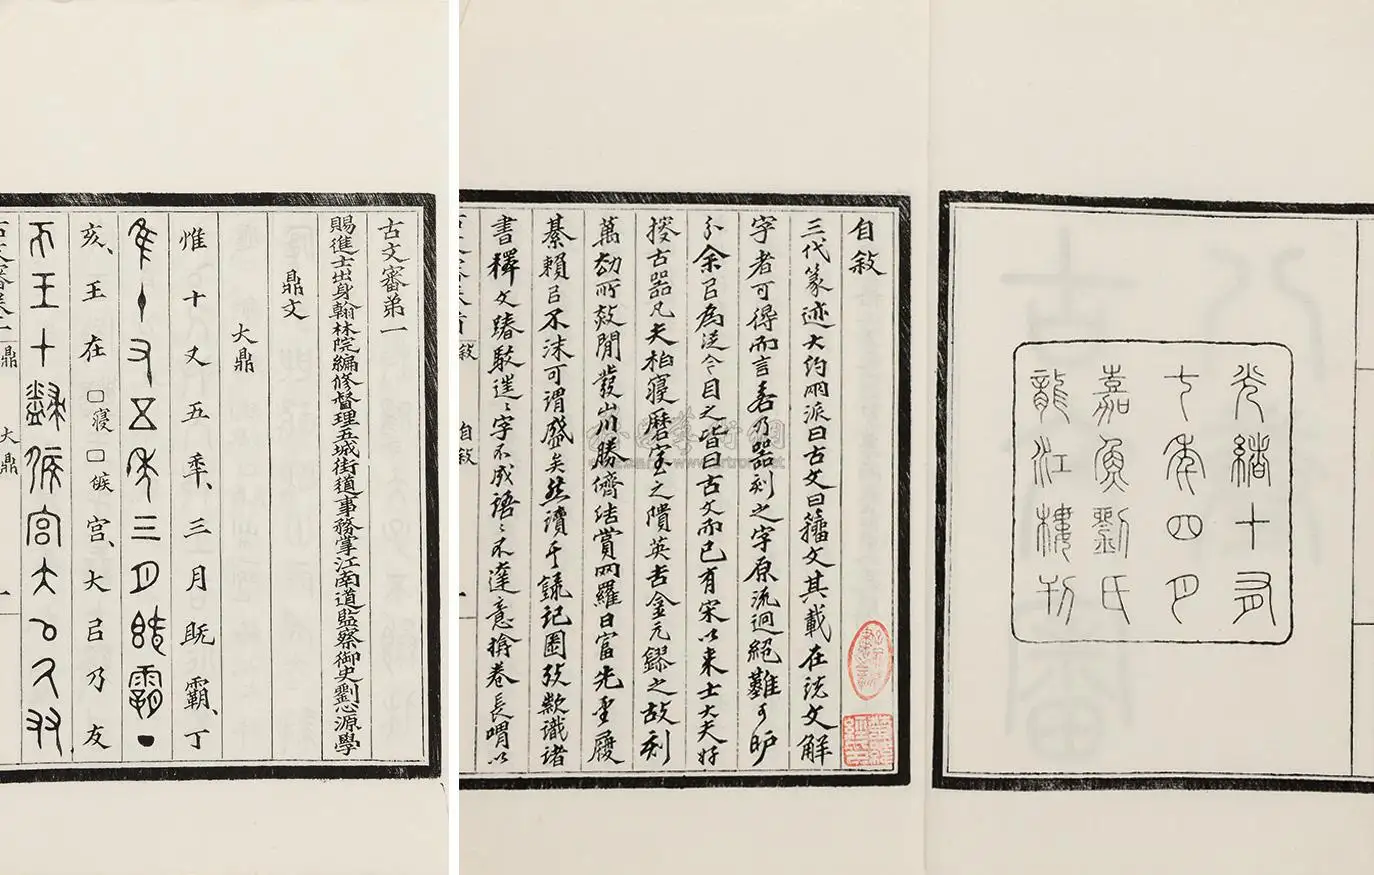 光緒十有
七年四月
嘉魚劉氏
龍江樓刊
自敘
三代篆迹大約兩派曰古文曰籀文其載在說文解
字者可得而言若乃器刻之字原流迥絕難可
尒余㠯為泛今目之皆曰古文而已有宋以來士大夫好
古器凡夫柏寑磨室之隤英吉金元鏐之故刻
萬劫所效閒發山川勝儕結賞网羅日富先聖履
綦賴㠯不沫可謂盛矣然讀其錄記圖攷款識諸
書釋文踳駁遳〻字不成語〻不達意揜卷長喟以
自敘
古文審弟一
賜進士出身翰林院編修督理五城街道事務掌江南道監察御史劉心源學
鼎文
大鼎
惟十又五秊三月旣霸丁
隹十又五年三月既霸丁
亥王在□寑□㑨宮大㠯乃友
古文審卷一 鼎 大鼎 一